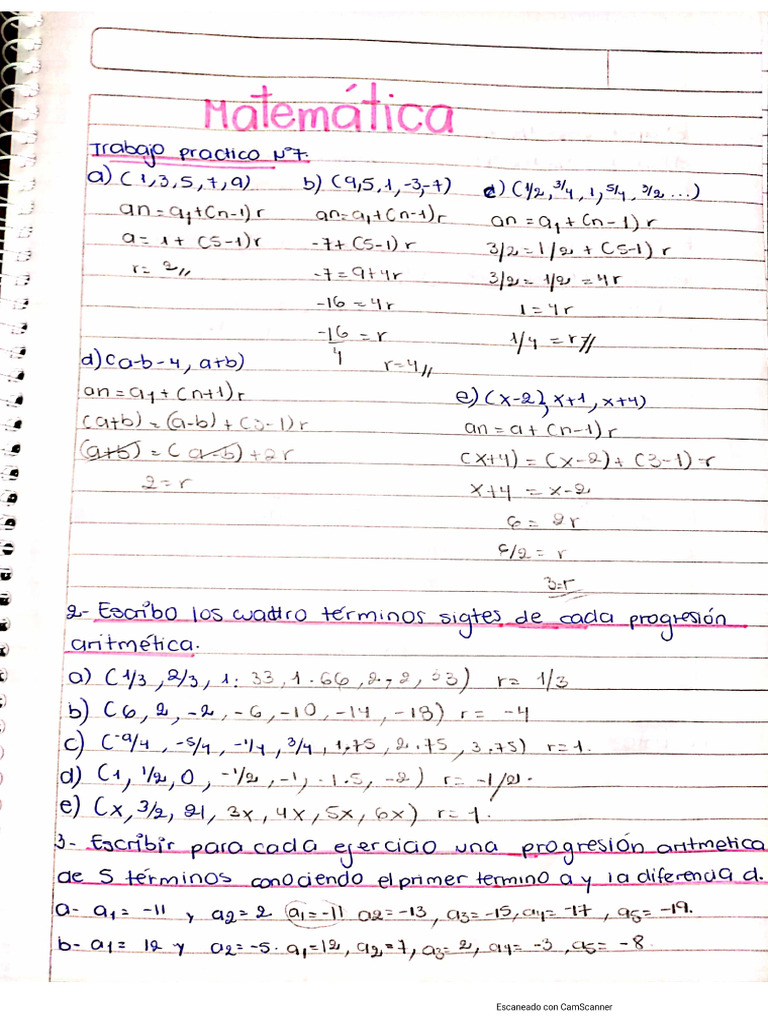 Matemática
Trabajo practico N°7.
a) (1,3,5,7,9) b) (9,5,1,-3,-7) c) (1/2, 3/4, 1, 5/4, 3/2 ...)
an=a1+(n-1)r an=a1+(n-1)r an=a1+(n-1)r
a= 1+ (5-1)r -7+(5-1)r 3/2=1/2+(5-1)r
r= 2 -7=9+4r 3/2= 1/2 =4r
-16=4r 1=4r
-16/4 =r 1/4 =r
r=4
d) (a-b-4, a+b)
an=a1+(n+1)r
(a+b)=(a-b)+(3-1)r
(a+b)=(a-b)+2r
2=r
e) (x-2, x+1, x+4)
an=a+(n-1)r
(x+4)=(x-2)+(3-1)-r
x+4 = x-2
6= 2r
6/2= r
3=r
2- Escribo los cuatro términos sigtes de cada progresión
aritmética.
a) (1/3, 2/3, 1. 33, 1.66, 2, 2, 33) r= 1/3
b) (6, 2, -2, -6, -10, -14, -18) r= -4
c) (-9/4, -5/4, -1/4, 3/4, 1,75, 2.75, 3.75) r=1.
d) (1, 1/2, 0, -1/2, -1, -1.5, -2) r= -1/2.
e) (x, 3/2, 21, 3x, 4x, 5x, 6x) r= 1.
3- Escribir para cada ejercicio una progresión aritmetica
de 5 términos conociendo el primer termino a y la diferencia d.
a- a1= -11 y a2= 2 a1=-11 a2=-13, a3=-15, a4=-17, a5=-19.
b- a1= 12 y a2=-5. a1=12, a2=7, a3= 2, a4= -3, a5= -8.
Escaneado con CamScanner